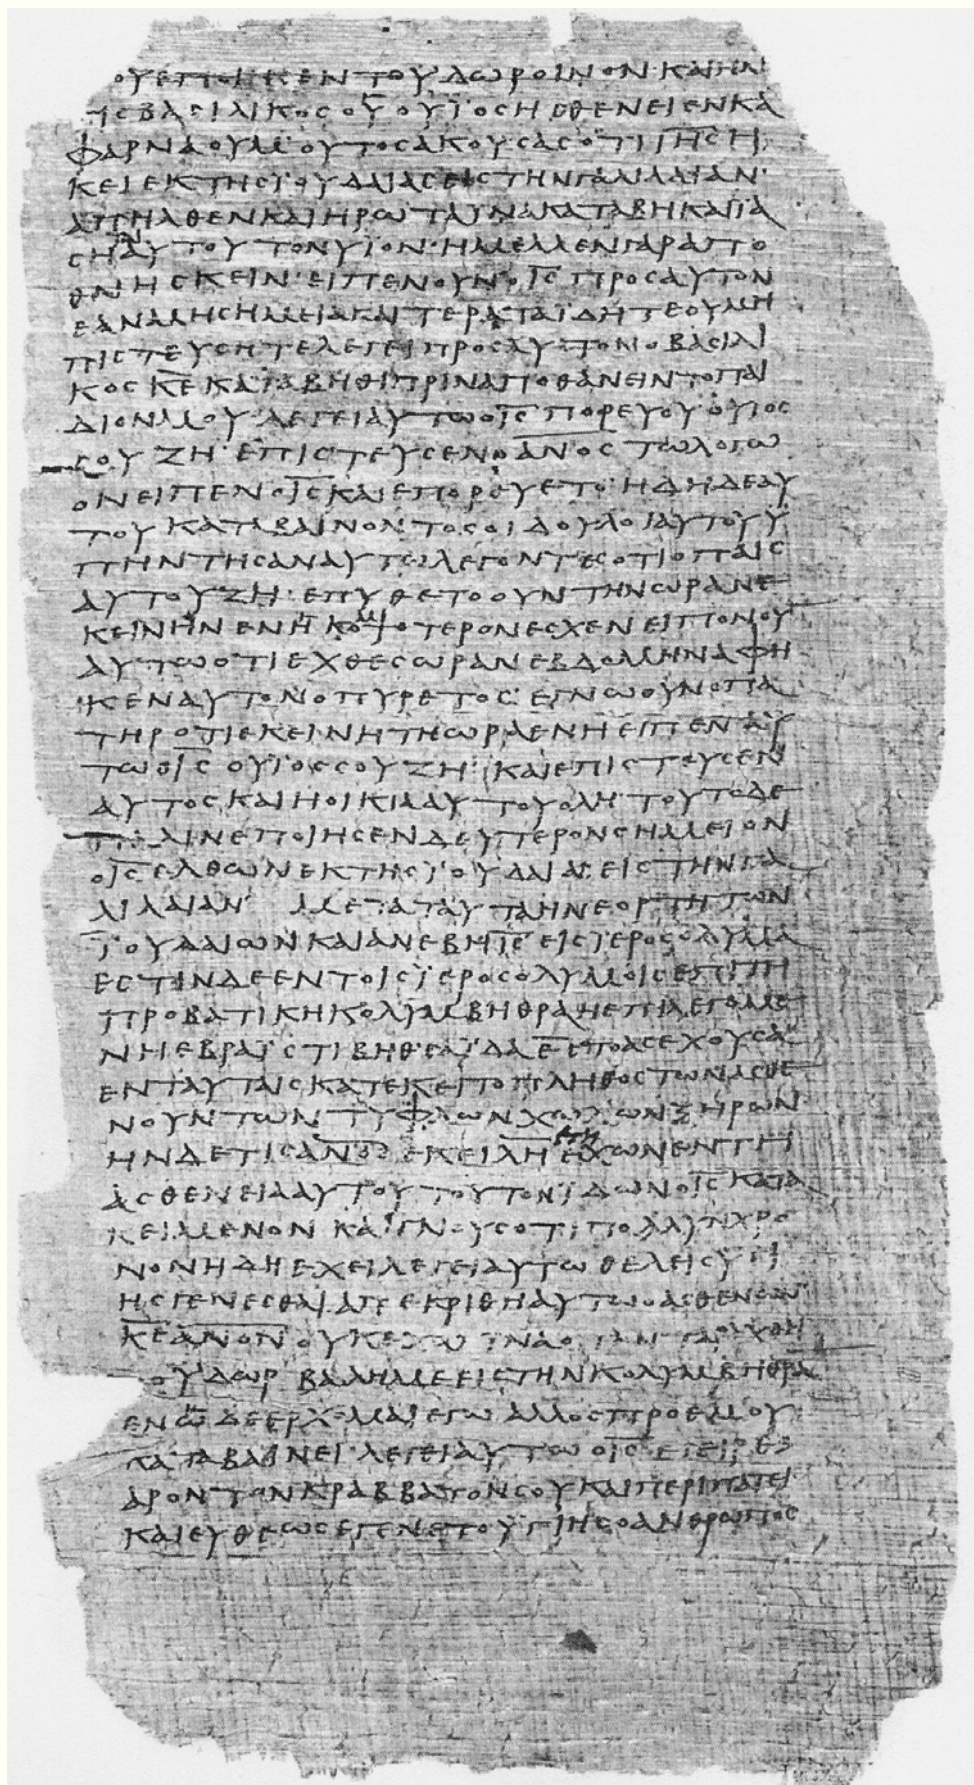 ΟΥΕΠΟΙΗϹΕΝΤΟΥΔΩΡΟΙΝΟΝ·ΚΑΙΗΝ
ΤΙϹΒΑϹΙΛΙΚΟϹΟΥΟΥΪΟϹΗϹΘΕΝΕΙΕΝΚΑ
ΦΑΡΝΑΟΥΜ·ΟΥΤΟϹΑΚΟΥϹΑϹΟΤΙΙΗϹΗ
ΚΕΙΕΚΤΗϹΪΟΥΔΑΙΑϹΕΙϹΤΗΝΓΑΛΙΛΑΙΑΝ·
ΑΠΗΛΘΕΝΚΑΙΗΡΩΤΑΪΝΑΚΑΤΑΒΗΚΑΙΪΑ
ϹΗΑΥΤΟΥΤΟΝΥΪΟΝ·ΗΜΕΛΛΕΝΓΑΡΑΠΟ
ΘΝΗϹΚΕΙΝ·ΕΙΠΕΝΟΥΝΟΙϹΠΡΟϹΑΥΤΟΝ
ΕΑΝΜΗϹΗΜΕΙΑΚΑΙΤΕΡΑΤΑΪΔΗΤΕΟΥΜΗ
ΠΙϹΤΕΥϹΗΤΕΛΕΓΕΙΠΡΟϹΑΥΤΟΝΟΒΑϹΙΛΙ
ΚΟϹΚΕΚΑΤΑΒΗΘΙΠΡΙΝΑΠΟΘΑΝΕΙΝΤΟΠΑΙ
ΔΙΟΝΜΟΥ·ΛΕΓΕΙΑΥΤΩΟΙϹΠΟΡΕΥΟΥ·ΟΥΙΟϹ
ϹΟΥΖΗ·ΕΠΙϹΤΕΥϹΕΝΟΑΝΟϹΤΩΛΟΓΩ
ΟΝΕΙΠΕΝΟΙϹΚΑΙΕΠΟΡΕΥΕΤΟ·ΗΔΗΔΕΑΥ
ΤΟΥΚΑΤΑΒΑΙΝΟΝΤΟϹΟΙΔΟΥΛΟΙΑΥΤΟΥΥ
ΠΗΝΤΗϹΑΝΑΥΤΩΛΕΓΟΝΤΕϹΟΤΙΟΠΑΙϹ
ΑΥΤΟΥΖΗ·ΕΠΥΘΕΤΟΟΥΝΤΗΝΩΡΑΝΕ
ΚΕΙΝΗΝΕΝΗΚΟΜΨΟΤΕΡΟΝΕϹΧΕΝΕΙΠΟΝΟΥ
ΑΥΤΩΟΤΙΕΧΘΕϹΩΡΑΝΕΒΔΟΜΗΝΑΦΗ
ΚΕΝΑΥΤΟΝΟΠΥΡΕΤΟϹ·ΕΓΝΩΟΥΝΟΠΑ
ΤΗΡΟΤΙΕΚΕΙΝΗΤΗΩΡΑΕΝΗΕΙΠΕΝΑΥ
ΤΩΟΙϹΟΥΙΟϹϹΟΥΖΗ·ΚΑΙΕΠΙϹΤΕΥϹΕΝ
ΑΥΤΟϹΚΑΙΗΟΙΚΙΑΑΥΤΟΥΟΛΗ·ΤΟΥΤΟΔΕ
ΠΑΛΙΝΕΠΟΙΗϹΕΝΔΕΥΤΕΡΟΝϹΗΜΕΙΟΝ
ΟΙϹΕΛΘΩΝΕΚΤΗϹΪΟΥΔΑΙΑϹΕΙϹΤΗΝΓΑ
ΛΙΛΑΙΑΝ· ΜΕΤΑΤΑΥΤΑΗΝΕΟΡΤΗΤΩΝ
ΪΟΥΔΑΙΩΝΚΑΙΑΝΕΒΗΙϹΕΙϹΪΕΡΟϹΟΛΥΜΑ
ΕϹΤΙΝΔΕΕΝΤΟΙϹΪΕΡΟϹΟΛΥΜΟΙϹΕΠΙΤΗ
ΠΡΟΒΑΤΙΚΗΚΟΛΥΜΒΗΘΡΑΗΕΠΙΛΕΓΟΜΕ
ΝΗΕΒΡΑΪϹΤΙΒΗΘϹΑΪΔΑΕϹΤΟΑϹΕΧΟΥϹΑ
ΕΝΤΑΥΤΑΙϹΚΑΤΕΚΕΙΤΟΠΛΗΘΟϹΤΩΝΑϹΘΕ
ΝΟΥΝΤΩΝΤΥΦΛΩΝΧΩΛΩΝΞΗΡΩΝ
ΗΝΔΕΤΙϹΑΝΟϹΕΚΕΙΛΗΕΤΗΕΧΩΝΕΝΤΗ
ΑϹΘΕΝΕΙΑΑΥΤΟΥΤΟΥΤΟΝΪΔΩΝΟΙϹΚΑΤΑ
ΚΕΙΜΕΝΟΝΚΑΙΓΝΟΥϹΟΤΙΠΟΛΥΝΧΡΟ
ΝΟΝΗΔΗΕΧΕΙΛΕΓΕΙΑΥΤΩΘΕΛΕΙϹΥΓΙ
ΗϹΓΕΝΕϹΘΑΙ·ΑΠΕΚΡΙΘΗΑΥΤΩΟΑϹΘΕΝΩΝ
ΚΕΑΝΟΝΟΥΚΕΧΩΪΝΑΟΤΑΝΤΑΡΑΧΘΗ
ΤΟΥΔΩΡΒΑΛΗΜΕΕΙϹΤΗΝΚΟΛΥΜΒΗΘΡΑ
ΕΝΩΔΕΕΡΧΟΜΑΙΕΓΩΑΛΛΟϹΠΡΟΕΜΟΥ
ΚΑΤΑΒΑΙΝΕΙ·ΛΕΓΕΙΑΥΤΩΟΙϹΕΓΕΙΡΕ
ΑΡΟΝΤΟΝΚΡΑΒΒΑΤΟΝϹΟΥΚΑΙΠΕΡΙΠΑΤΕΙ
ΚΑΙΕΥΘΕΩϹΕΓΕΝΕΤΟΥΓΙΗϹΟΑΝΘΡΩΠΟϹ